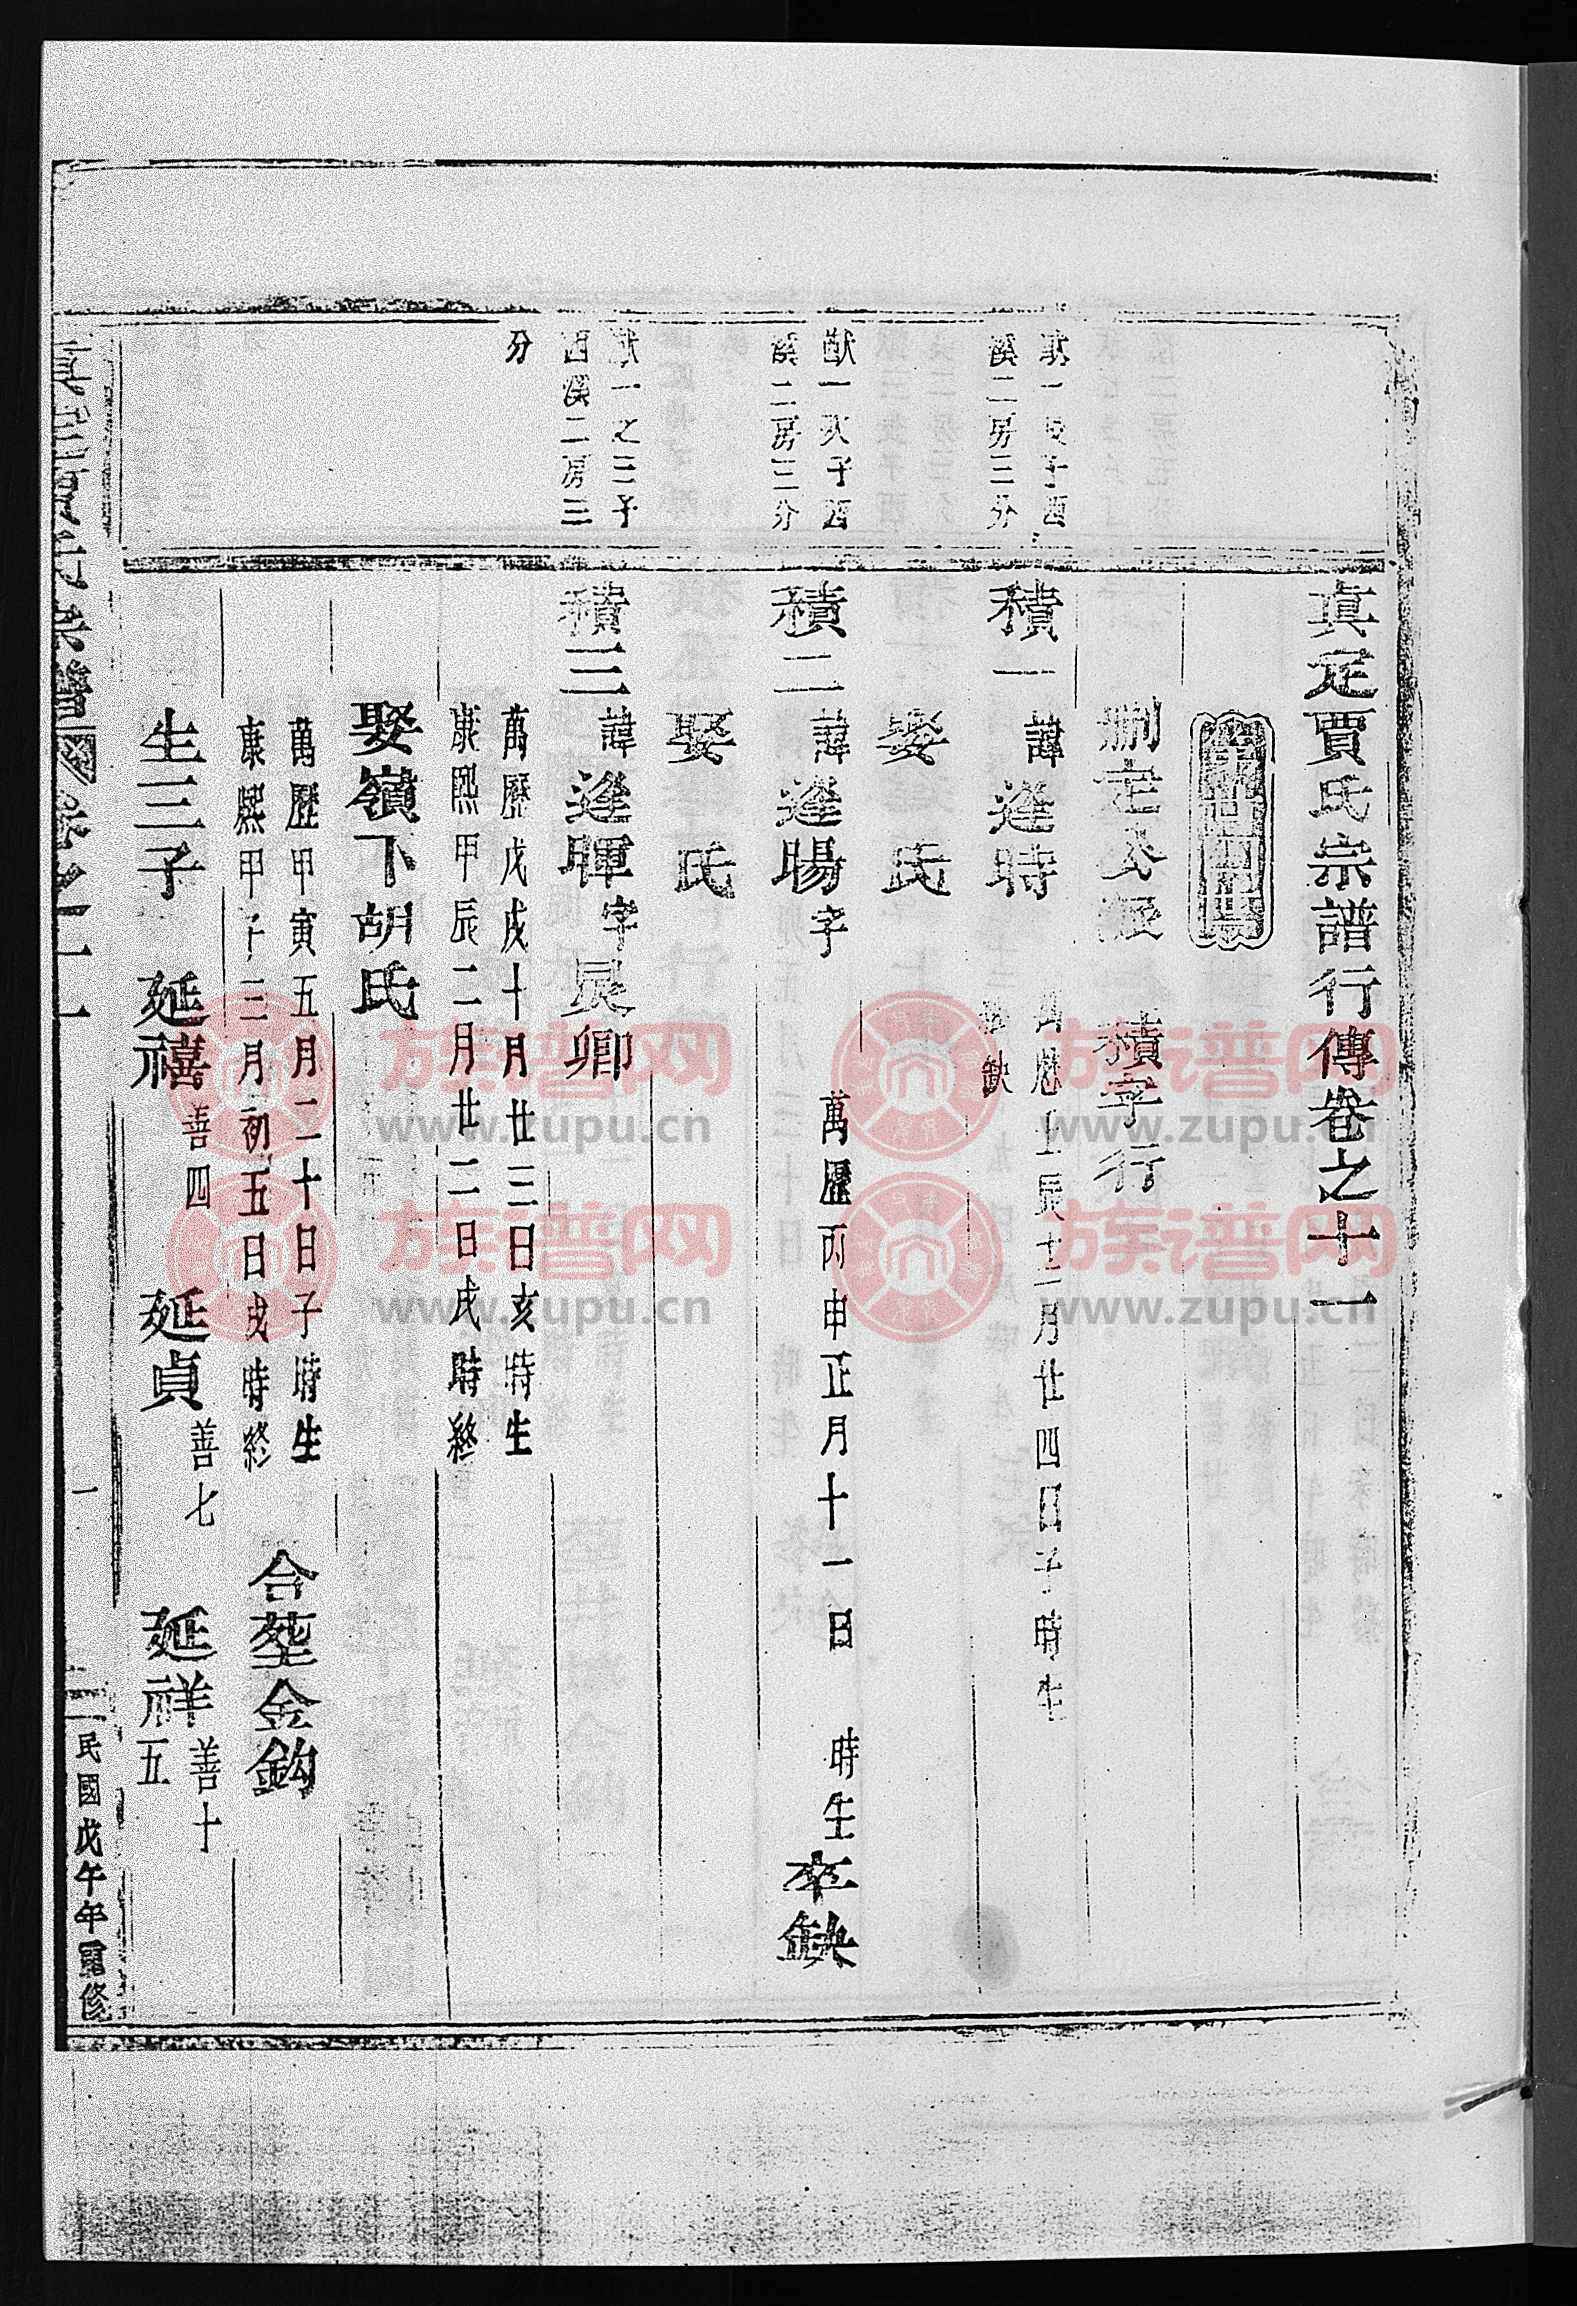 真定賈氏宗譜行傳卷之十一
刪定公派 積字行
猷一長子西
溪二房三分
積一 諱逢時
萬歷壬辰十二月廿四日子時生
缺
娶 氏
猷一次子西
溪二房三分
積二 諱逢暘字
萬歷丙申正月十一日 時生卒缺
娶 氏
猷一之三子
西溪二房三
分
積三 諱逢暉字晨卿
萬歷戊戌十月廿三日亥時生
康熙甲辰二月廿二日戌時終
娶嶺下胡氏
萬歷甲寅五月二十日子時生
康熙甲子三月初五日戌時終
合葬金鈎
生三子 延禧善四 延貞善七 延祥善十五
真定賈氏宗譜 卷之十一 一 民國戊午年重修
族谱网
www.zupu.cn
族谱网
www.zupu.cn
族谱网
www.zupu.cn
族谱网
www.zupu.cn